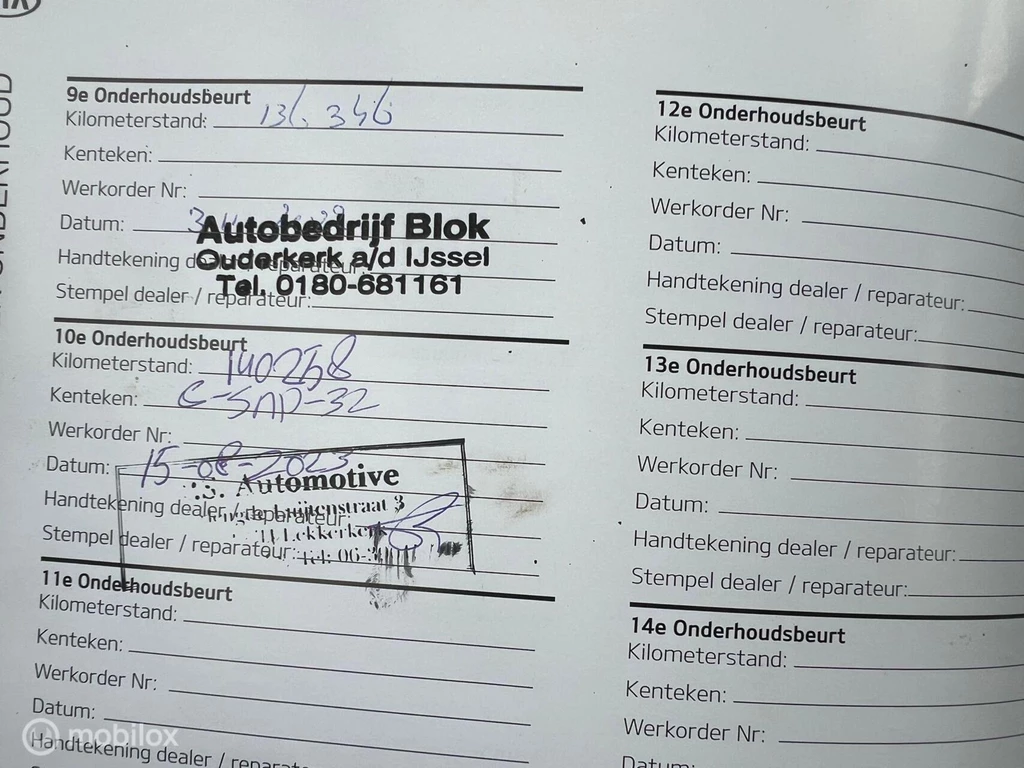 9e Onderhoudsbeurt
Kilometerstand: 136.346
Kenteken:
Werkorder Nr:
Datum:
Handtekening dealer / reparateur:
Stempel dealer / reparateur:
Autobedrijf Blok
Ouderkerk a/d IJssel
Tel. 0180-681161
10e Onderhoudsbeurt
Kilometerstand: 140258
Kenteken:
Werkorder Nr:
Datum: 15-08-2023
Handtekening dealer / reparateur:
Stempel dealer / reparateur:
Automotive
11e Onderhoudsbeurt
Kilometerstand:
Kenteken:
Werkorder Nr:
Datum:
Handtekening dealer / reparateur:
12e Onderhoudsbeurt
Kilometerstand:
Kenteken:
Werkorder Nr:
Datum:
Handtekening dealer / reparateur:
Stempel dealer / reparateur:
13e Onderhoudsbeurt
Kilometerstand:
Kenteken:
Werkorder Nr:
Datum:
Handtekening dealer / reparateur:
Stempel dealer / reparateur:
14e Onderhoudsbeurt
Kilometerstand:
Kenteken:
Werkorder Nr:
Datum:
mobilox